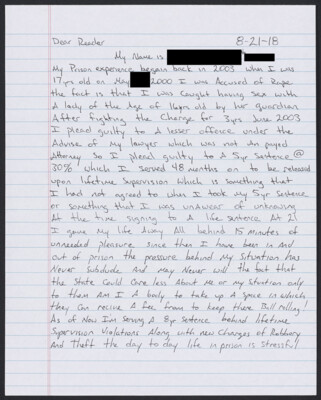 Dear Reader 8-21-18
My Name is
My Prison experience began back in 2003 when I was
17yrs old on May 2000 I was Accused of Rape
the fact is that I was Caught having sex with
A lady of the Age of 16yrs old by her guardian
After fighting the Charge for 3yrs June 2003
I plead guilty to A lesser offence under the
Advise of My lawyer which was Not An payed
Attorney So I plead guilty to A 5yr Sentence @
30% which I Served 48 months on to be released
upon lifetime Supervision which is something that
I had not agreed to when I took my 5yr Sentence
or something that I was unawear of unknowing
At the time signing to A life sentence At 21
I gave My life Away All behind 15 minutes of
unneeded pleasure. Since then I have been in and
out of prison the pressure behind My Situation has
Never Subdude And may Never will the fact that
the State Could Care less About Me or My Situation only
to them AM I A body to take up A space in which
they Can recive A fee from to keep there Bill rolling!
As of Now I'm Serving A 8yr Sentence behind lifetime
Supervision Violations. Along with new Charges of Robbery
And Theft the day to day life in prison is Stressful